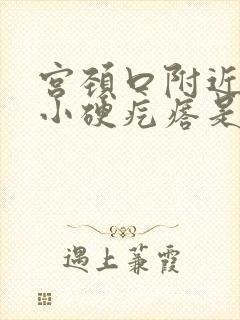 宫颈口附近
小硬疙瘩是
遇上蒹霞